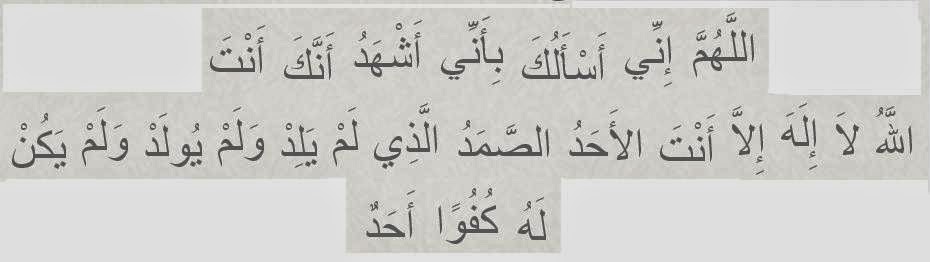 اللَّهُمَّ إِنِّي أَسْأَلُكَ بِأَنِّي أَشْهَدُ أَنَّكَ أَنْتَ
اللَّهُ لاَ إِلَهَ إِلاَّ أَنْتَ الأَحَدُ الصَّمَدُ الَّذِي لَمْ يَلِدْ وَلَمْ يُولَدْ وَلَمْ يَكُنْ
لَهُ كُفُوًا أَحَدٌ